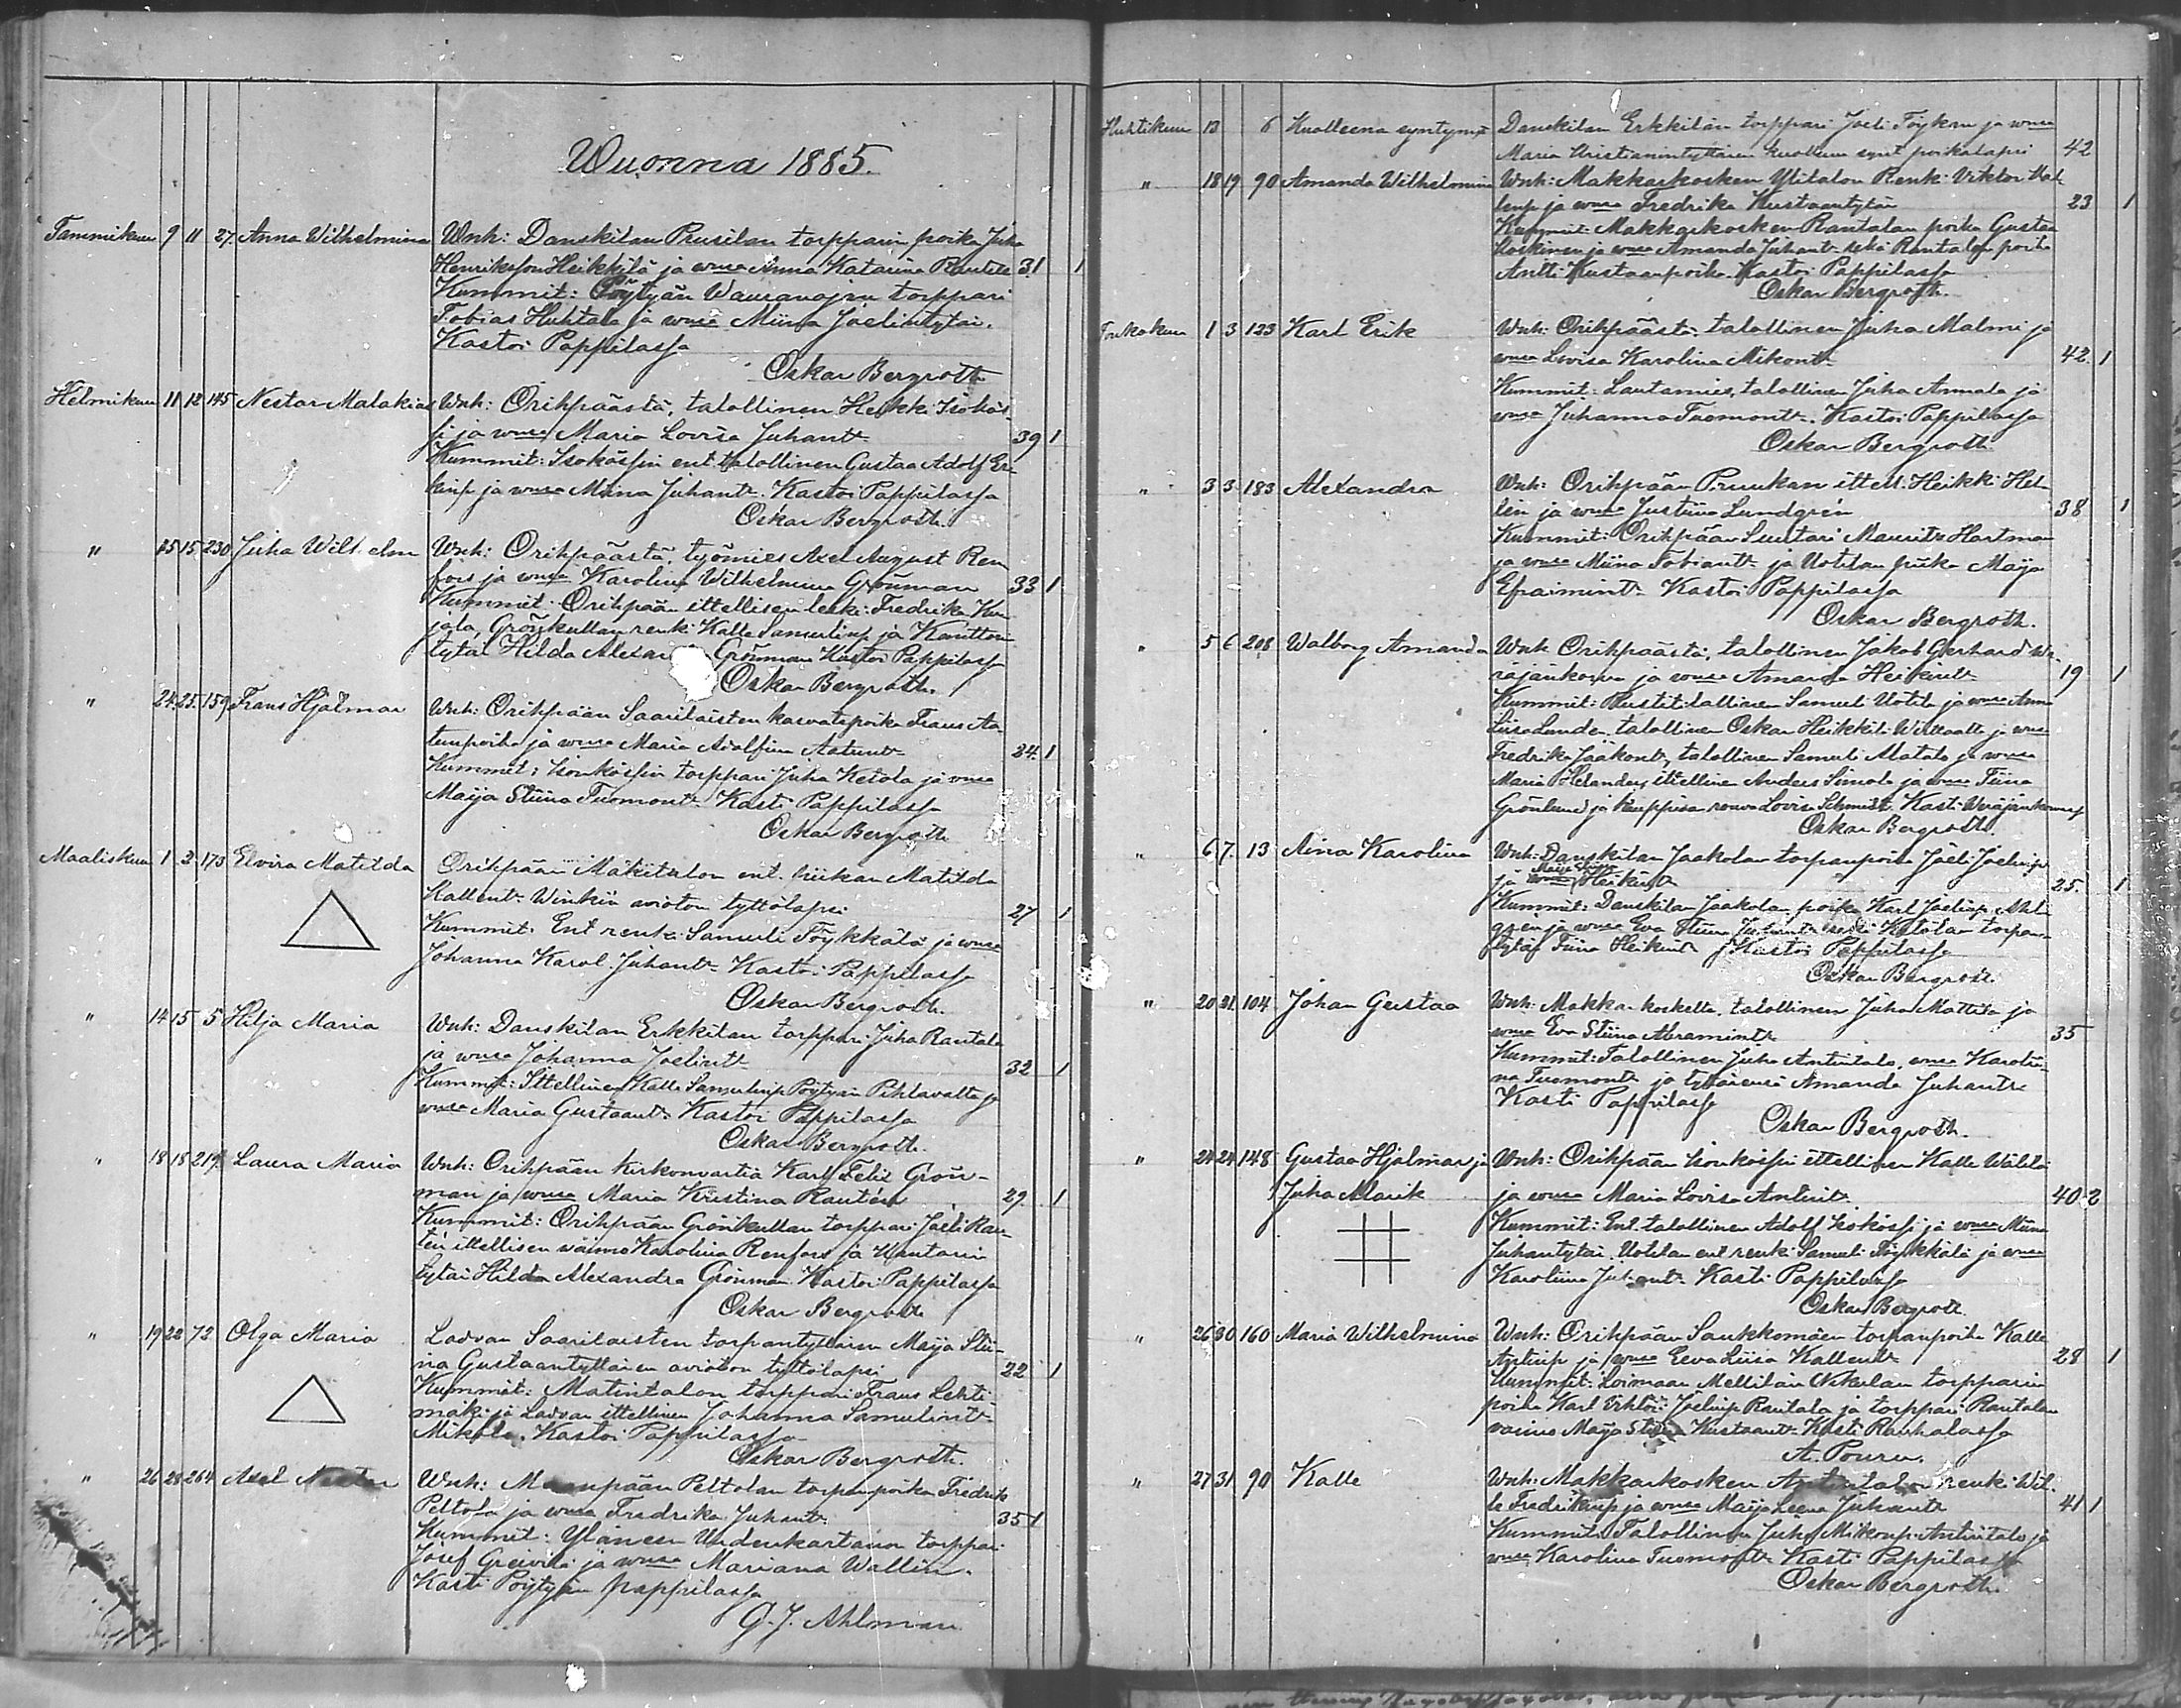 Wuonna 1885.
Tammikuun 9 11 27. Anna Wilhelmina Wnh: Danskilan Prusilan torpparin poika Juha
Henriksson Heikkilä ja wmsa Anna Katarina Rautell 31 1
Kummit: Pöytyän torppari
Tobias Huhtala ja wmsa Miina Joelintytär.
Kastoi Pappilassa
Oskar Bergroth
Helmikuun 11 12 145 Nestor Malakias Wnh: Orihpäästä, talollinen Heikki Isokäs
si ja wmsa Maria Lovisa Juhantr 39 1
Kummit: Isokässin ent. talollinen Gustaa Adolf Er-
kinp ja wmsa Miina Juhantr. Kastoi Pappilassa
Oskar Bergroth.
" 15 15 230 Juha Wilhelm Wnh: Orihpäästä, työmies Axel August Ren
fors ja wmsa Karolina Wilhelmina Grönman 33 1
Kummit: Orihpään ittellisen leski Fredrika Ku
jala, Grönkullan renki Kalle Samulinp ja Kanttorin
tytär Hilda Alexan Grönman Kastoi Pappilassa
Oskar Bergroth.
" 24. 25. 159 Frans Hjalmar Wnh: Orihpään Saarilaisten kasvatspoika Frans Aa
tunpoika ja wmsa Maria Adolfina Aatuntr 34. 1
Kummit: Isonkässin torppari Juha Ketola ja wmsa
Maija Stiina Tuomontr Kasti Pappilassa
Oskar Bergroth
Maaliskuun 1 2 173 Elvira Matilda Orihpään Mäkitalon ent. piikan Matilda
Kallentr Winkin avioton tyttölapsi 27 1
Kummit: Ent renki Samuli Töykkälä ja wmsa
Johanna Karol. Juhantr Kastoi Pappilassa
Oskar Bergroth.
" 14 15 5 Hilja Maria Wnh: Danskilan Erkkilan torppari Juha Rantala
ja wmsa Johanna Joelintr 32 1
Kummit: Ittellinen Kalle Samulinp Pöytyän Pihlavalta ja
wmsa Maria Gustaantr Kastoi Pappilassa
Oskar Bergroth.
" 18 18 219. Laura Maria Wnh: Orihpään kirkonvartia Karl Felix Grön-
man ja wmsa Maria Kristina Rautén 29. 1
Kummit: Orihpään Grönkullan torppari Joeli Rau-
tén ittellisen vaimo Karolina Renfors ja Kanttorin
tytär Hilda Alexandra Grönman Kastoi Pappilassa
Oskar Bergroth
" 19 22 72 Olga Maria Ladvan Saarilaisten torpantyttären Maija Stii-
na Gustaantyttären avioton tyttölapsi 22 1
Kummit: Matintalon torppari Frans Lehti
mäki ja Ladvan ittellinen Johanna Samulintr
Mikola. Kastoi Pappilassa
Oskar Bergroth.
" 26 28 264 Axel Nestor Wnh: Peltolan torpanpoika Fredrik
Peltola ja wmsa Fredrika Juhantr 35 1
Kummit: Yläneen Uudenkartanon torppari
Josef ja wmsa Mariana Wallin.
Kasti Pöytyän pappilassa
G. J. Ahlman
Huhtikuun 13 6 Kuolleena syntynyt Danskilan Erkkilän torppari Joeli Töykän ja wmsa
Maria Kristianintyttären kuolleen synt poikalapsi 42
" 18 19 90 Amanda Wilhelmina Wnh: Makkarkosken Ylitalon Renki Viktor Kal
lenp ja wmsa Fredrika Kustaantytär 23 1
Kummit: Makkarkosken Rantalan poika Gustaa
Koskinen ja wmsa Amanda Juhantr sekä Rantalan poika
Antti Kustaanpoika. Kastoi Pappilassa
Oskar Bergroth.
Toukokuun 1 3 123 Karl Erik Wnh: Orihpäästä talollinen Juha Malmi ja
wmsa Lovisa Karolina Mikontr 42. 1
Kummit: Lautamies, talollinen Juha Annala ja
wmsa Juhanna Tuomontr. Kastoi Pappilassa
Oskar Bergroth.
" 3 3. 183 Alexandra Wnh: Orihpään Pruukan ittell. Heikki Hel-
lén ja wmsa Justiina Lundgrén 38 1
Kummit: Orihpään Suutari Maurits Hartman
ja wmsa Miina Tobiantr ja Uotilan piika Maija
Efraimintr Kastoi Pappilassa
Oskar Bergroth.
" 5 6 208 Walborg Amanda Wnh Orihpäästä, talollinen Jakob Gerhard We-
räjänkorva ja wmsa Amanda Heikintr 19 1
Kummit: Rustitilallinen Samuel Uotila ja wmsa Anna
Liisa Lunden, talollinen Oskar Heikkilä Willoalta ja wmsa
Fredrika Jaakontr, talollinen Samuli Matala ja wmsa
Maria Helander, ittellinen Anders Simola ja wmsa Tiina
Grönlund ja kauppias rouva Lovisa Schmidt. Kasti Weräjänkorvassa
Oskar Bergroth.
" 6 7. 13 Aina Karolina Wnh: Danskilan Jaakolan torpanpoika Joeli Joelinp
ja Maija Stiina Heikintr 25. 1
Kummit: Danskilan Jaakolan poika Karl Joelinp Ahl
grén ja wmsa Eva Stiina Juhantr sekä Ketolan torpan
tytär Tiina Heikintr Kastoi Pappilassa
Oskar Bergroth.
" 20 21. 104 Johan Gustaa Wnh: Makkarkoskelta, talollinen Juha Mattila ja
wmsa Eva Stiina Abramintr 35
Kummit: Talollinen Juha Anttitalo, wmsa Karolii-
na Tuomontr ja tyttärensä Amanda Juhantr
Kasti Pappilassa
Oskar Bergroth.
" 24 24 148 Gustaa Hjalmar ja Wnh: Orihpään Isonkässin ittellinen Kalle Wälilä
Juha Marik ja wmsa Maria Lovisa Antintr. 40 2
Kummit: Ent. talollinen Adolf Isokässi ja wmsa Miina
Juhantytär. Uotilan ent renki Samuli Töykkälä ja wmsa
Karoliina Juhantr Kasti Pappilassa
Oskar Bergroth.
" 26 30 160 Maria Wilhelmina Wnh: Orihpään Saukkomäen torpanpoika Kalle
Antinp ja wmsa Eeva Liisa Kallentr 28 1
Kummit: Loimaan Mellilän Nikulan torpparin
poika Karl Joelinp Rantala ja torppari Rantalan
vaimo Maija Stiina Kustaantr Kasti Rauhalassa
A. Pouru.
" 27 31 90 Kalle Wnh: Makkarkosken Anttitalon renki Wil-
le Fredrikinp ja wmsa Maija Leena Juhantr 41 1
Kummit: Talollinen Juha Mikonp Anttitalo ja
wmsa Karolina Tuomontr Kasti Pappilassa
Oskar Bergroth.